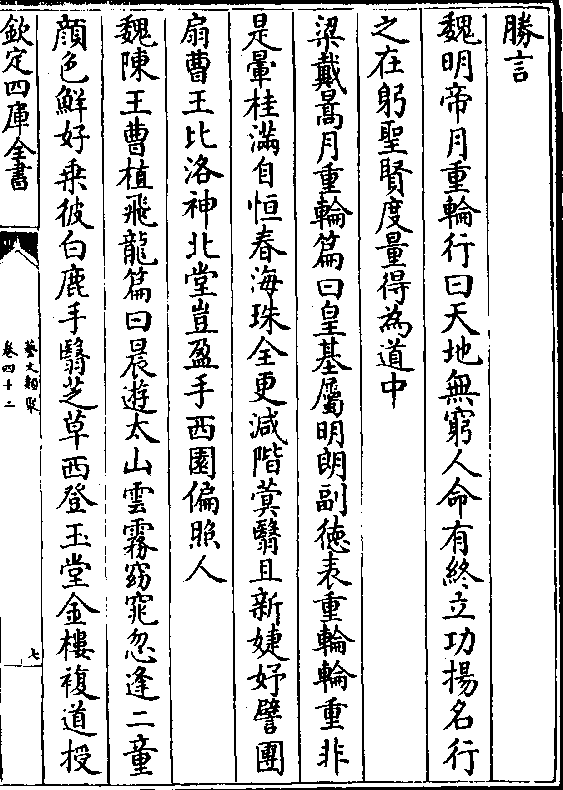 勝言
魏明帝月重輪行曰天地無窮人命有終立功揚名行
之在躬聖賢度量得為道中
梁戴暠月重輪篇曰皇基屬明朗副德表重輪輪重非
是暈桂滿自恒春海珠全更減階蓂翳且新婕妤譬團
扇曹王比洛神北堂豈盈手西園偏照人
魏陳王曹植飛龍篇曰晨遊太山雲霧窈窕忽逢二童
顔色鮮好乗彼白鹿手翳芝草西登玉堂金樓複道授
欽定四庫全書
藝文類聚
卷四十二
七